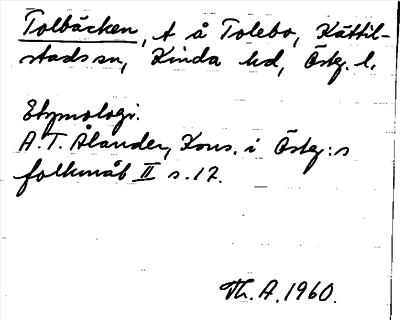 Tolbäcken, t å Tolebo, Kättil-
stads sn, Kinda hd, Östg. l.
Etymologi.
A. T. Ålander, Kons. i Östg:s
folkmål II s. 17.
Th. A. 1960.